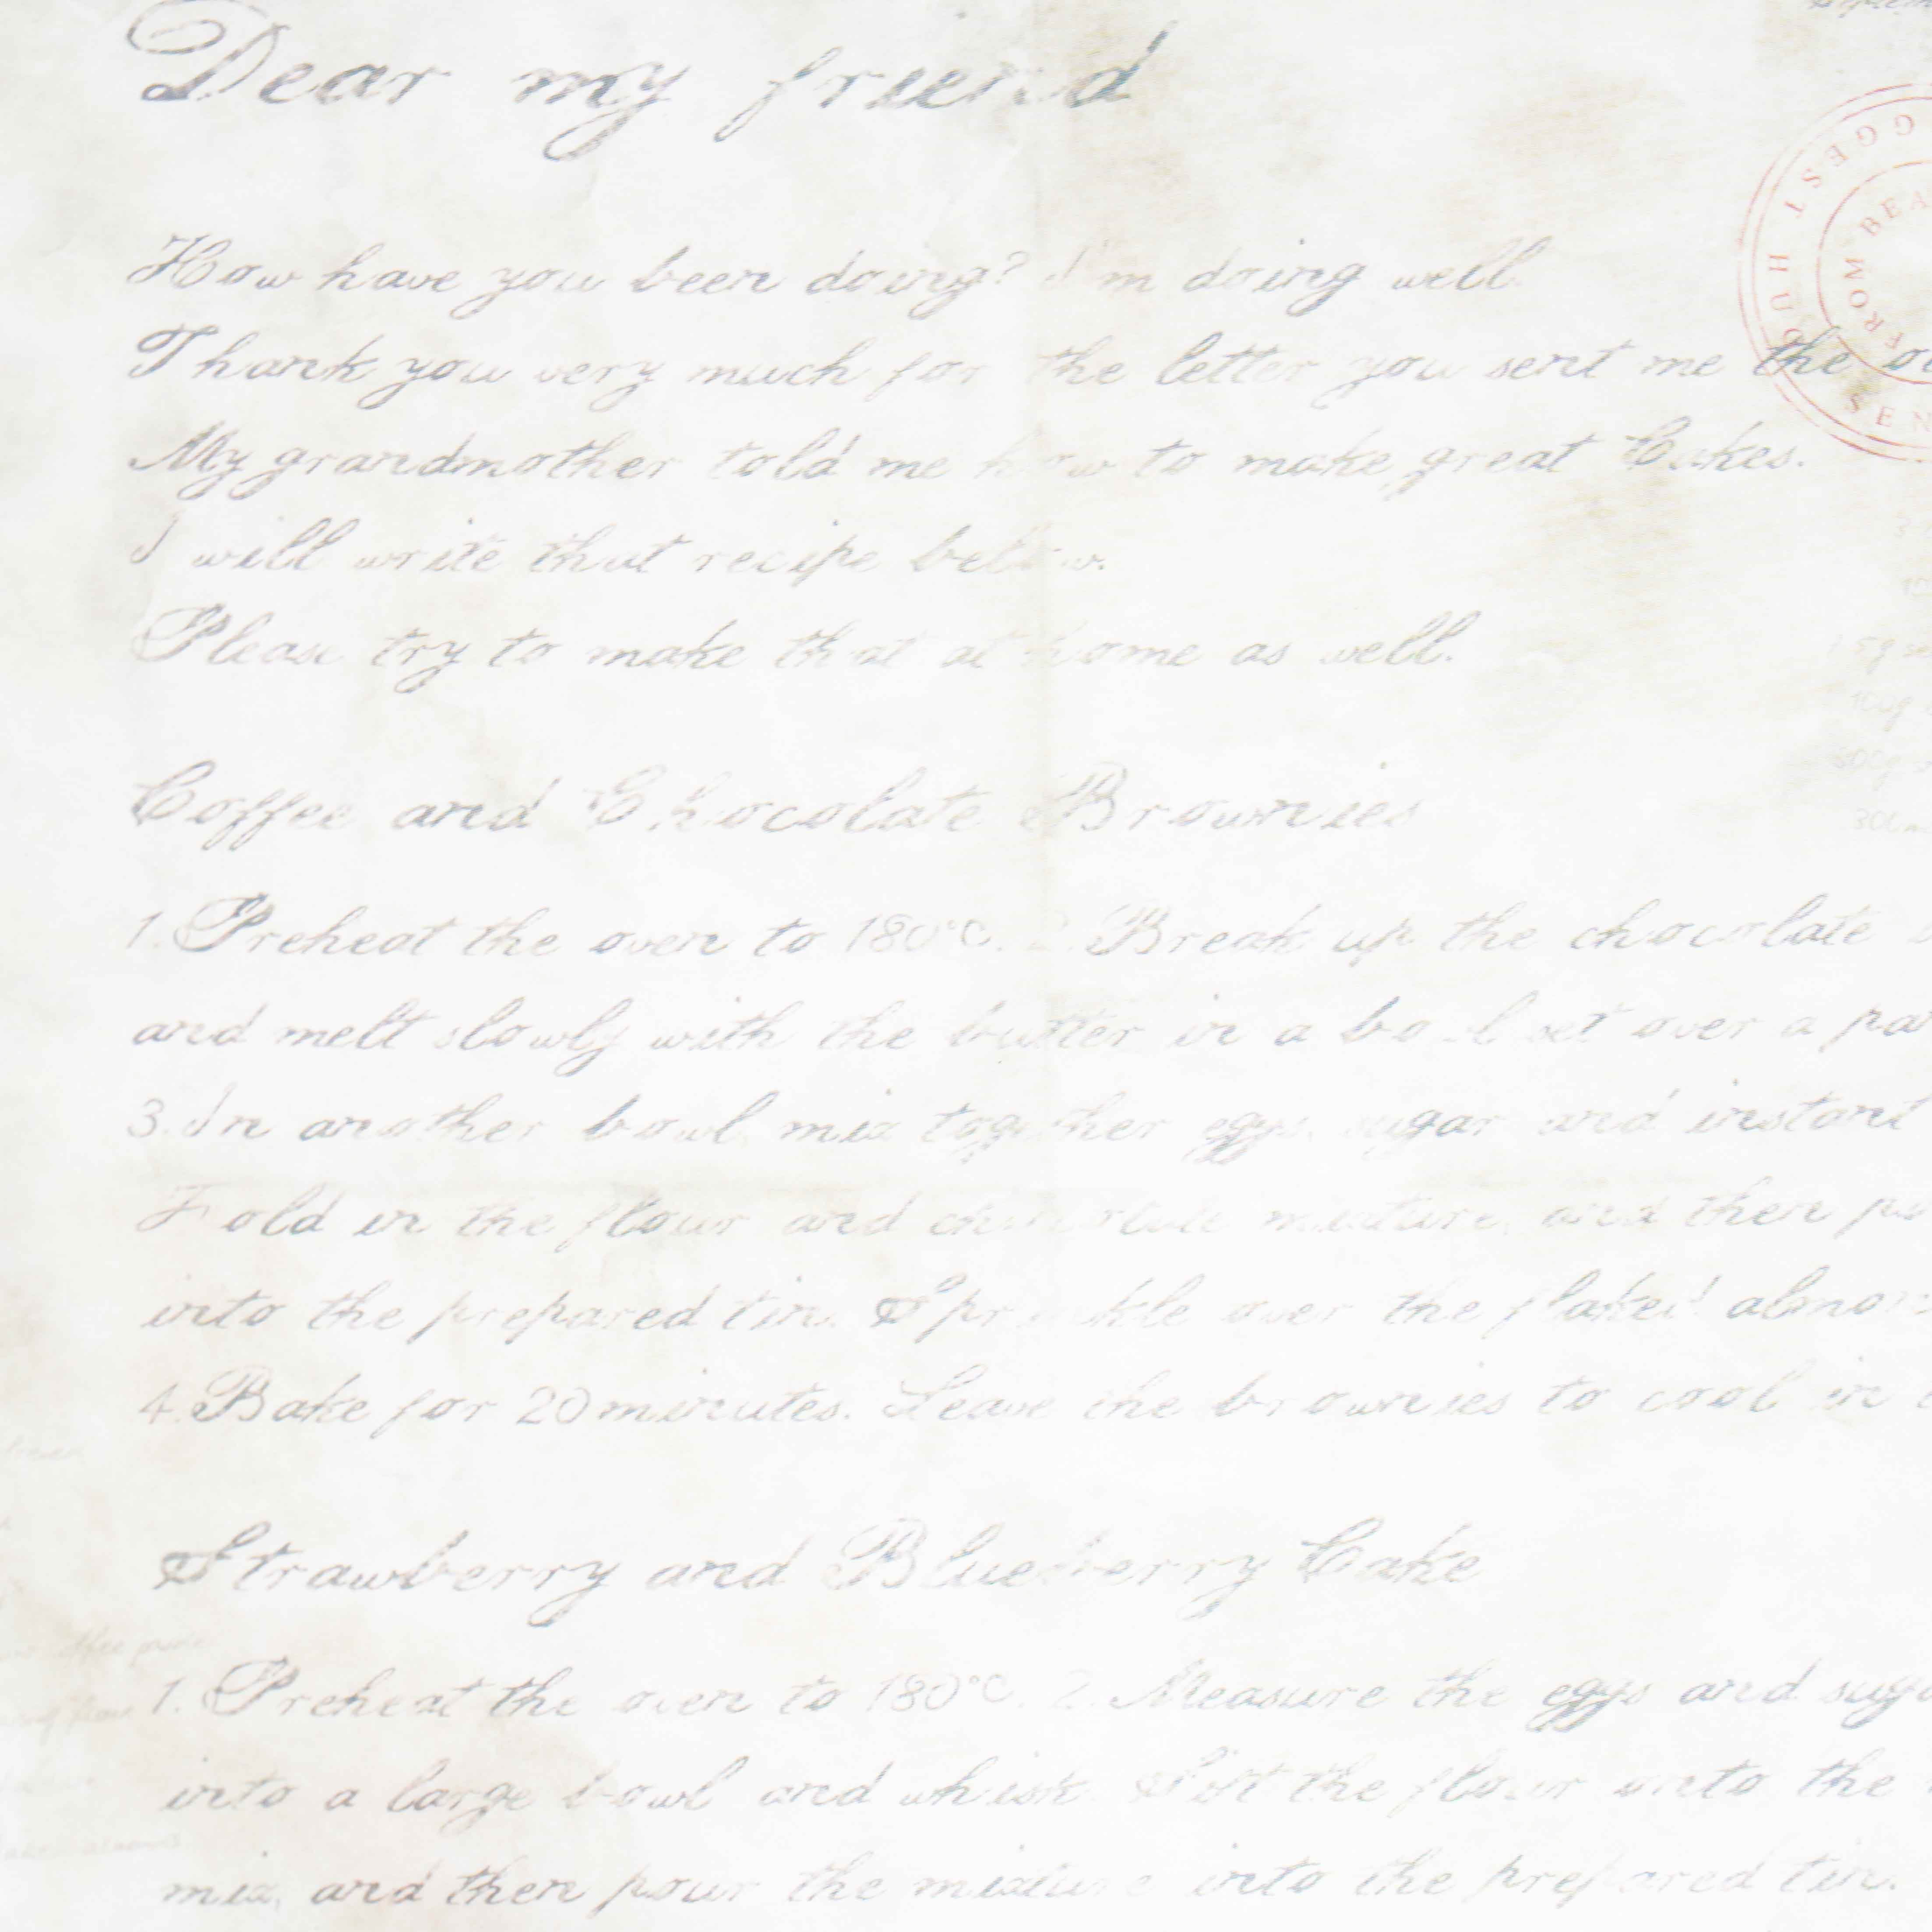 Dear my friend
How have you been doing? I'm doing well.
Thank you very much for the letter you sent me the
My grandmother told me how to make great Cakes.
I will write that recipe below.
Please try to make that at home as well.
Coffee and Chocolate Brownies
1. Preheat the oven to 180°C. 2. Break up the chocolate
and melt slowly with the butter in a bowl set over a
3. In another bowl mix together eggs, sugar and instant
Fold in the flour and chocolate mixture, and then
into the prepared tin. Sprinkle over the flaked
4. Bake for 20 minutes. Leave the brownies to cool in
Strawberry and Blueberry Cake
1. Preheat the oven to 180°C. 2. Measure the eggs and
into a large bowl and whisk. Sift the flour onto the
mix, and then pour the mixture into the prepared tin.
FROM